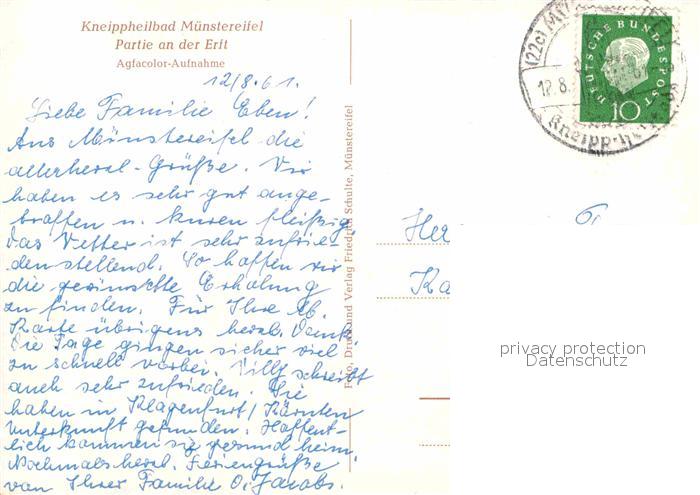 Kneippheilbad Münstereifel
Partie an der Erft
Agfacolor-Aufnahme
12/8.61.
Liebe Familie Eben!
Aus Münstereifel die
allerherzl. Grüße. Wir
haben es sehr gut ange-
troffen u. kuren fleißig,
das Wetter ist sehr zufrie-
denstellend. So hoffen wir
die gewünschte Erholung
zu finden. Für Ihre lb.
Karte übrigens herzl. Dank.
Die Tage gingen sicher viel
zu schnell vorbei. Willy schreibt
auch sehr zufrieden. Sie
haben in Klagenfurt/Kärnten
Unterkunft gefunden. Hoffent-
lich kommen sie gesund heim.
Nochmals herzl. Feriengrüße
von Ihrer Familie O. Jacobs.
Foto, Druck und Verlag Friedrich Schulte, Münstereifel
Her
Ka
(22c)
12.8.
Kneipp-
DEUTSCHE BUNDESPOST
10
privacy protection
Datenschutz